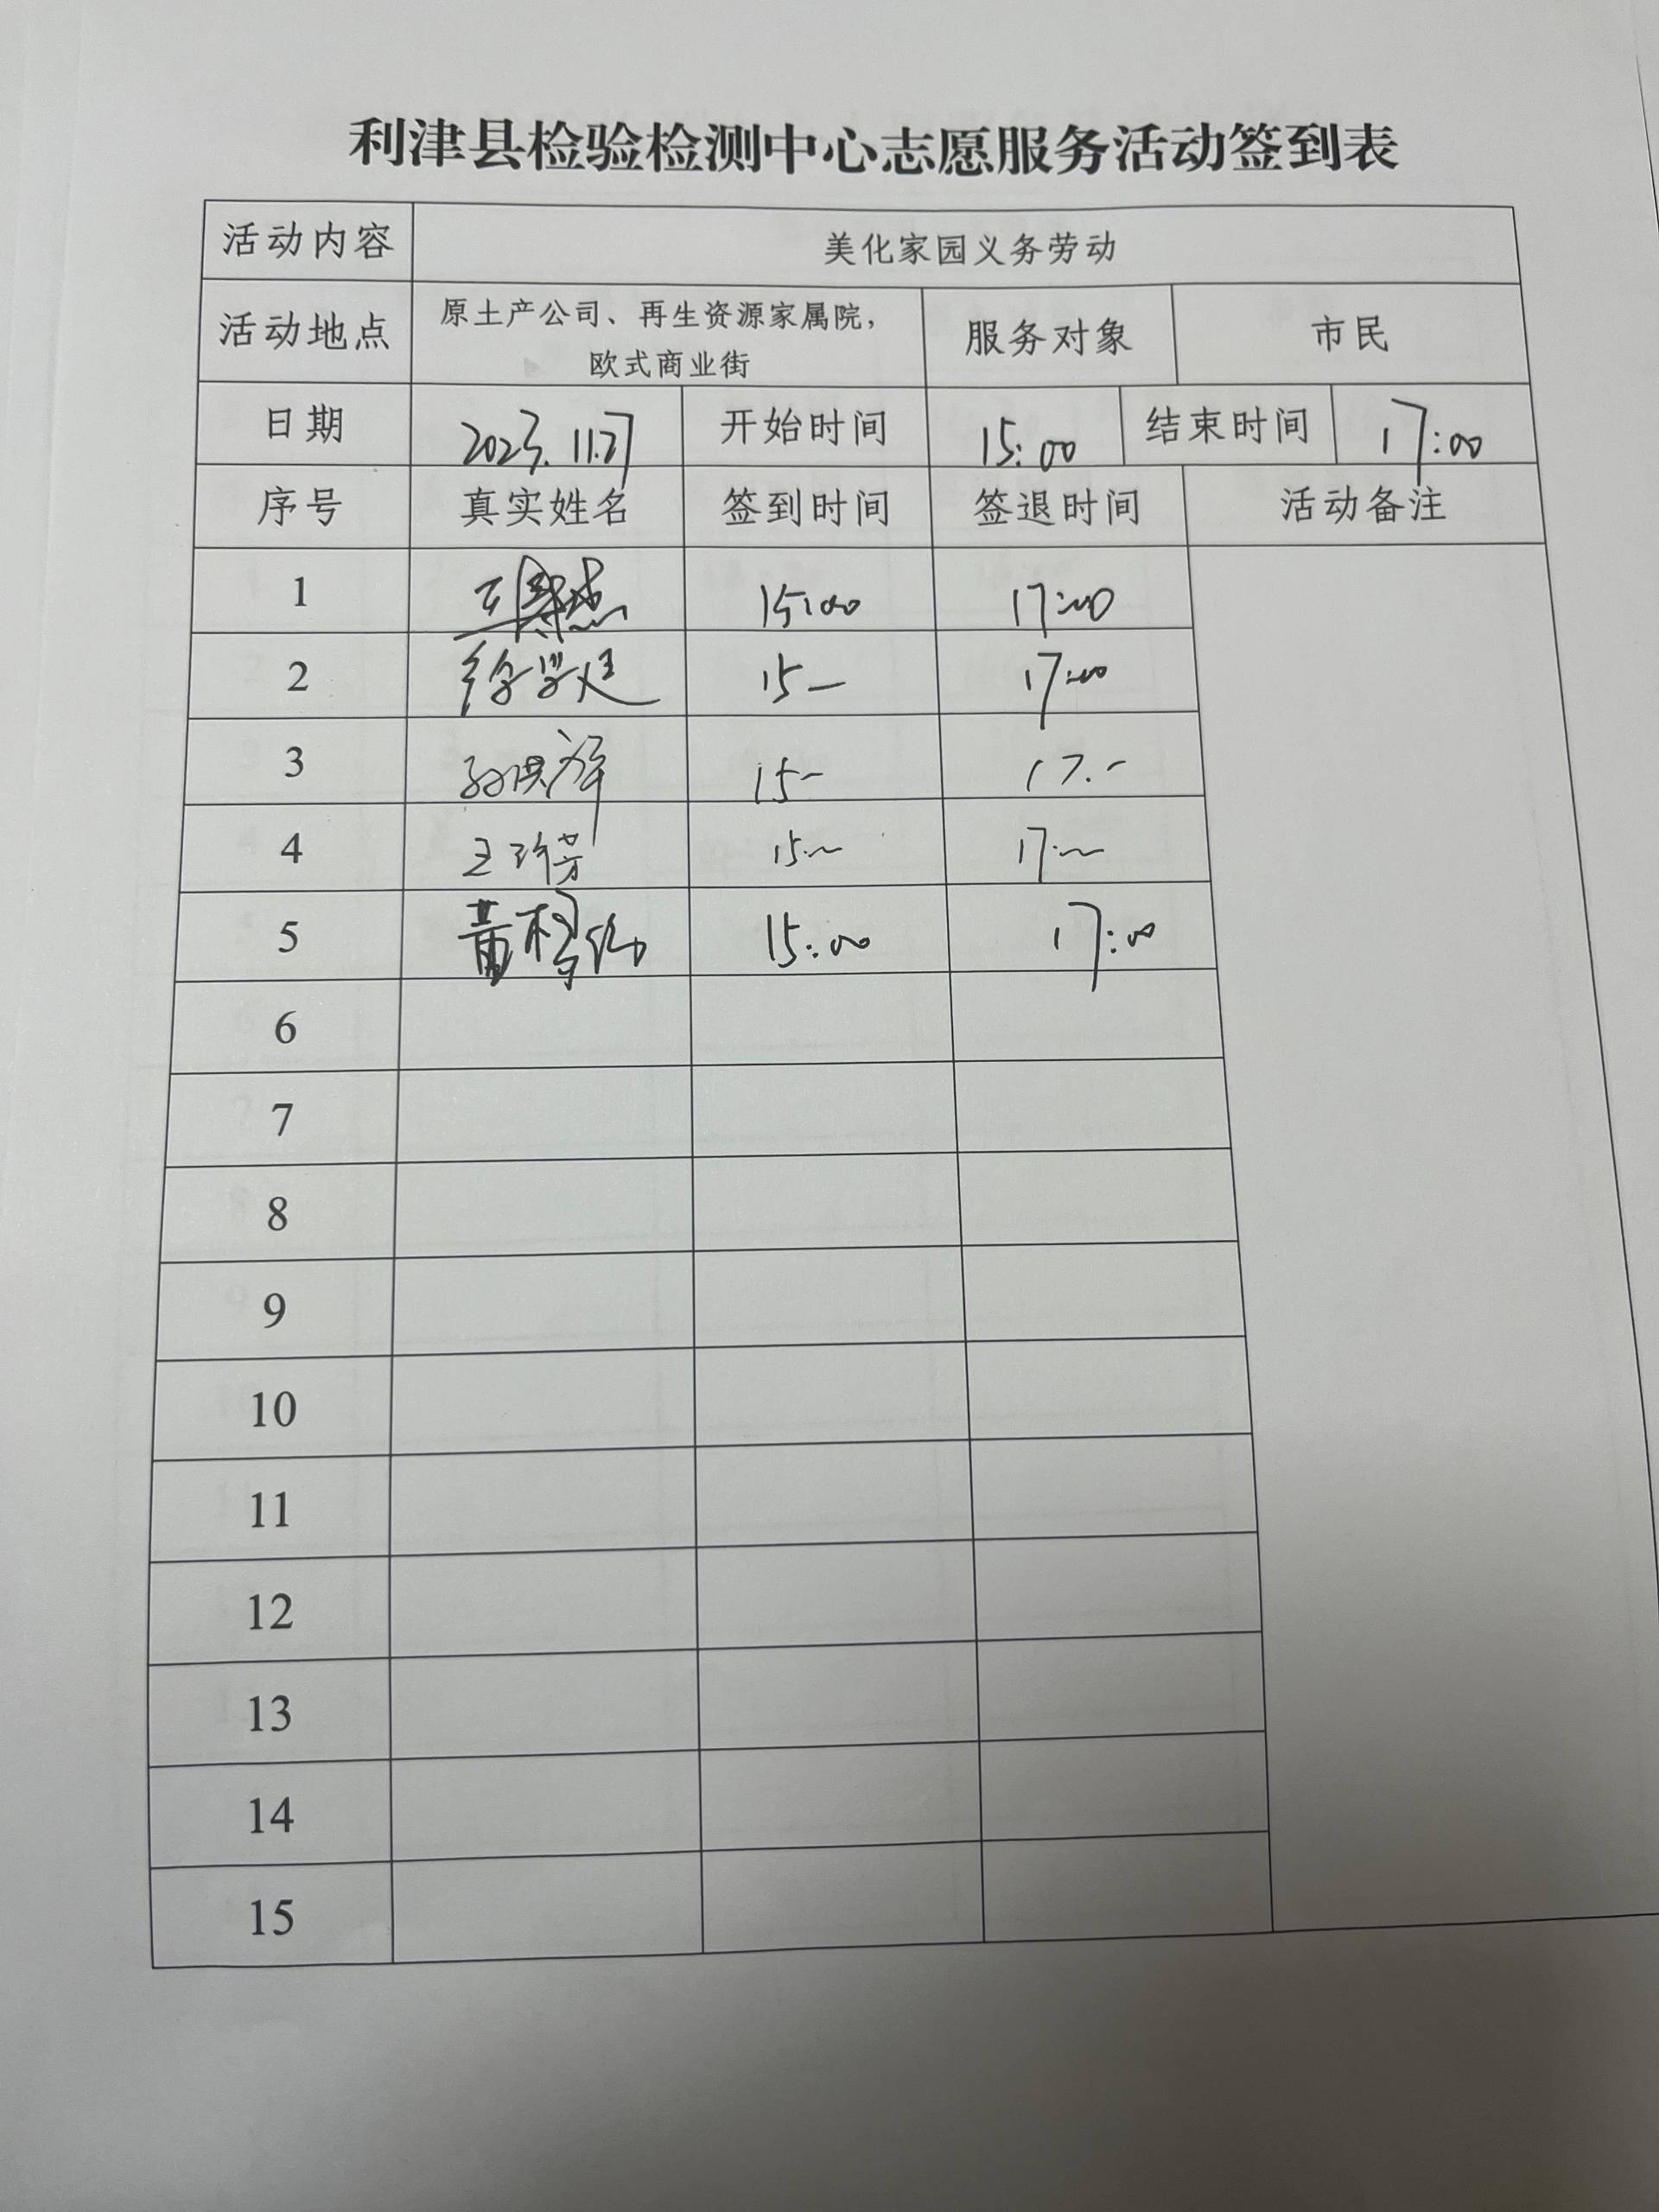 利津县检验检测中心志愿服务活动签到表
活动内容 美化家园义务劳动
活动地点 原土产公司、再生资源家属院，
欧式商业街 服务对象 市民
日期 2023.11.27 开始时间 15:00 结束时间 17:00
序号 真实姓名 签到时间 签退时间 活动备注
1 15:00 17:00
2 徐学廷 15— 17:00
3 孙洪祥 15– 17.–
4 王珍芳 15:~ 17:~
5 15:00 17:00
6
7
8
9
10
11
12
13
14
15